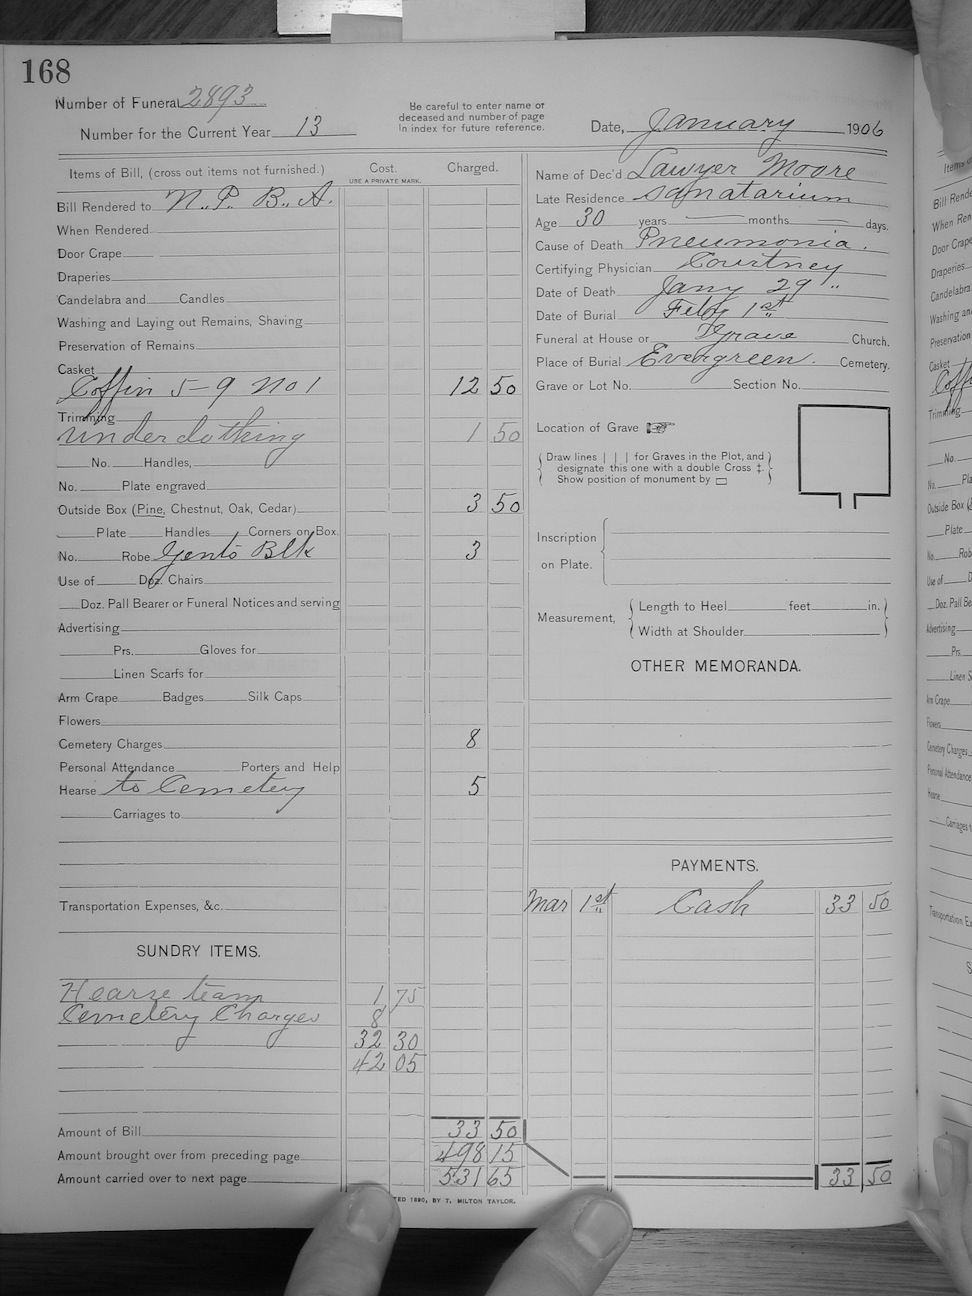 168
Number of Funeral 2893
Number for the Current Year 13
Be careful to enter name or
deceased and number of page
in index for future reference.
Date, January 1906
Items of Bill, (cross out items not furnished.) Cost. Charged.
USE A PRIVATE MARK.
Bill Rendered to N. P. B. A.
When Rendered
Door Crape
Draperies
Candelabra and Candles
Washing and Laying out Remains, Shaving
Preservation of Remains
Casket
Coffin 5-9 No 1 12 50
Trimming
Underclothing 1 50
No. Handles,
No. Plate engraved
Outside Box (Pine, Chestnut, Oak, Cedar) 3 50
Plate Handles Corners on Box.
No. Robe Gents Blk 3
Use of Doz. Chairs
Doz. Pall Bearer or Funeral Notices and serving
Advertising
Prs. Gloves for
Linen Scarfs for
Arm Crape Badges Silk Caps
Flowers
Cemetery Charges 8
Personal Attendance Porters and Help
Hearse to Cemetery 5
Carriages to
Transportation Expenses, &c.
SUNDRY ITEMS.
Hearse team 1 75
Cemetery Charges 8
32 30
42 05
Amount of Bill 33 50
Amount brought over from preceding page 498 15
Amount carried over to next page 531 65
TED 1890, BY T. MILTON TAYLOR.
Name of Dec'd Lawyer Moore
Late Residence Sanatarium
Age 30 years months days.
Cause of Death Pneumonia.
Certifying Physician Courtney
Date of Death Jany 29"
Date of Burial Feby 1st
Funeral at House or Grave Church.
Place of Burial Evergreen. Cemetery.
Grave or Lot No. Section No.
Location of Grave
Draw lines | | | for Graves in the Plot, and
designate this one with a double Cross ‡.
Show position of monument by ▭
Inscription
on Plate.
Measurement, Length to Heel feet in.
Width at Shoulder
OTHER MEMORANDA.
PAYMENTS.
Mar 1st Cash 33 50
33 50